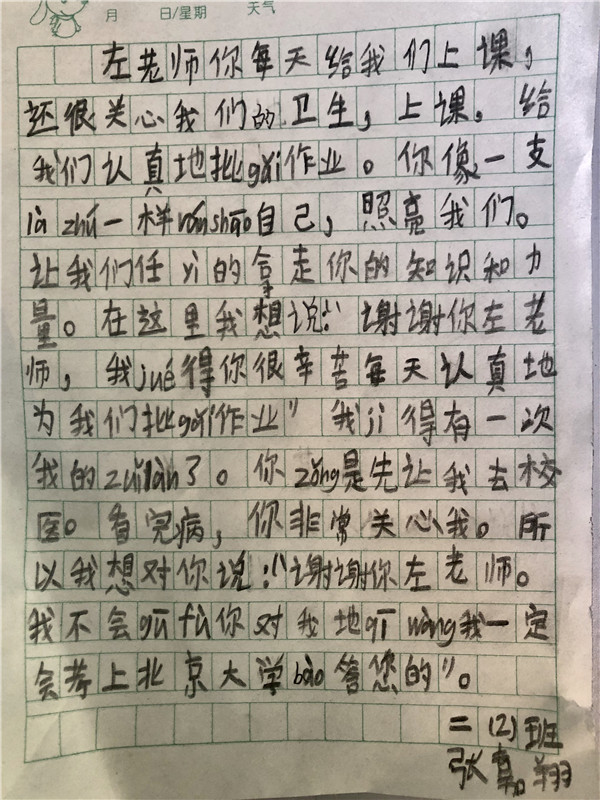 月 日/星期 天气
左老师你每天给我们上课，
还很关心我们的卫生，上课，给
我们认真地批gǎi作业。你像一支
là zhú一样ránshāo自己，照亮我们。
让我们任yì的拿走你的知识和力
量。在这里我想说：“谢谢你左老
师，我jué得你很辛苦每天认真地
为我们批gǎi作业”我jì得有一次
我的zuǐlàn了。你zǒng是先让我去校
医。看完病，你非常关心我。所
以我想对你说：“谢谢你左老师。
我不会gū fù你对我地qī wàng我一定
会考上北京大学bào答您的”。
二（2）班
张嘉翔